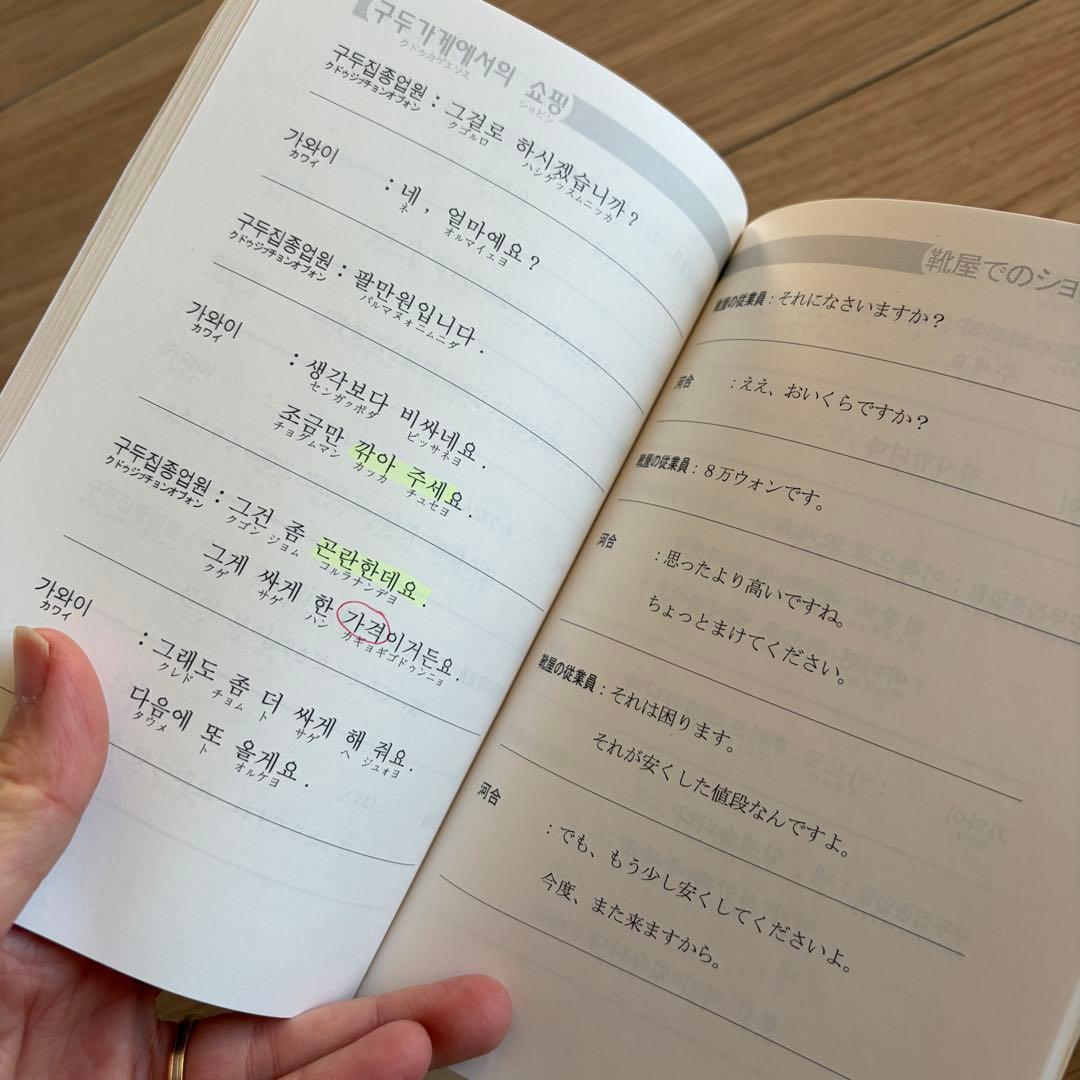 구두가게에서의 쇼핑
クドゥカゲエソエ ショピン
구두집종업원 : 그걸로 하시겠습니까?
クドゥジプチョンオプウォン クゴルロ ハシゲッスムニッカ
가와이 : 네, 얼마예요?
カワイ ネ オルマイェヨ
구두집종업원 : 팔만원입니다.
クドゥジプチョンオプウォン パルマヌォニムニダ
가와이 : 생각보다 비싸네요.
カワイ センガクポダ ピッサネヨ
조금만 깎아 주세요.
チョグムマン カッカ チュセヨ
구두집종업원 : 그건 좀 곤란한데요.
クドゥジプチョンオプウォン クゴン ジョム コルラナンデヨ
그게 싸게 한 가격이거든요.
クゲ サゲ ハン カギョギゴドゥンニョ
가와이 : 그래도 좀 더 싸게 해 줘요.
カワイ クレド チョム ト サゲ ヘ ジュォヨ
다음에 또 올게요.
タウメ ト オルケヨ
靴屋でのショ
靴屋の従業員 : それになさいますか?
河合 : ええ、おいくらですか?
靴屋の従業員 : 8万ウォンです。
河合 : 思ったより高いですね。
ちょっとまけてください。
靴屋の従業員 : それは困ります。
それが安くした値段なんですよ。
河合 : でも、もう少し安くしてくださいよ。
今度、また来ますから。